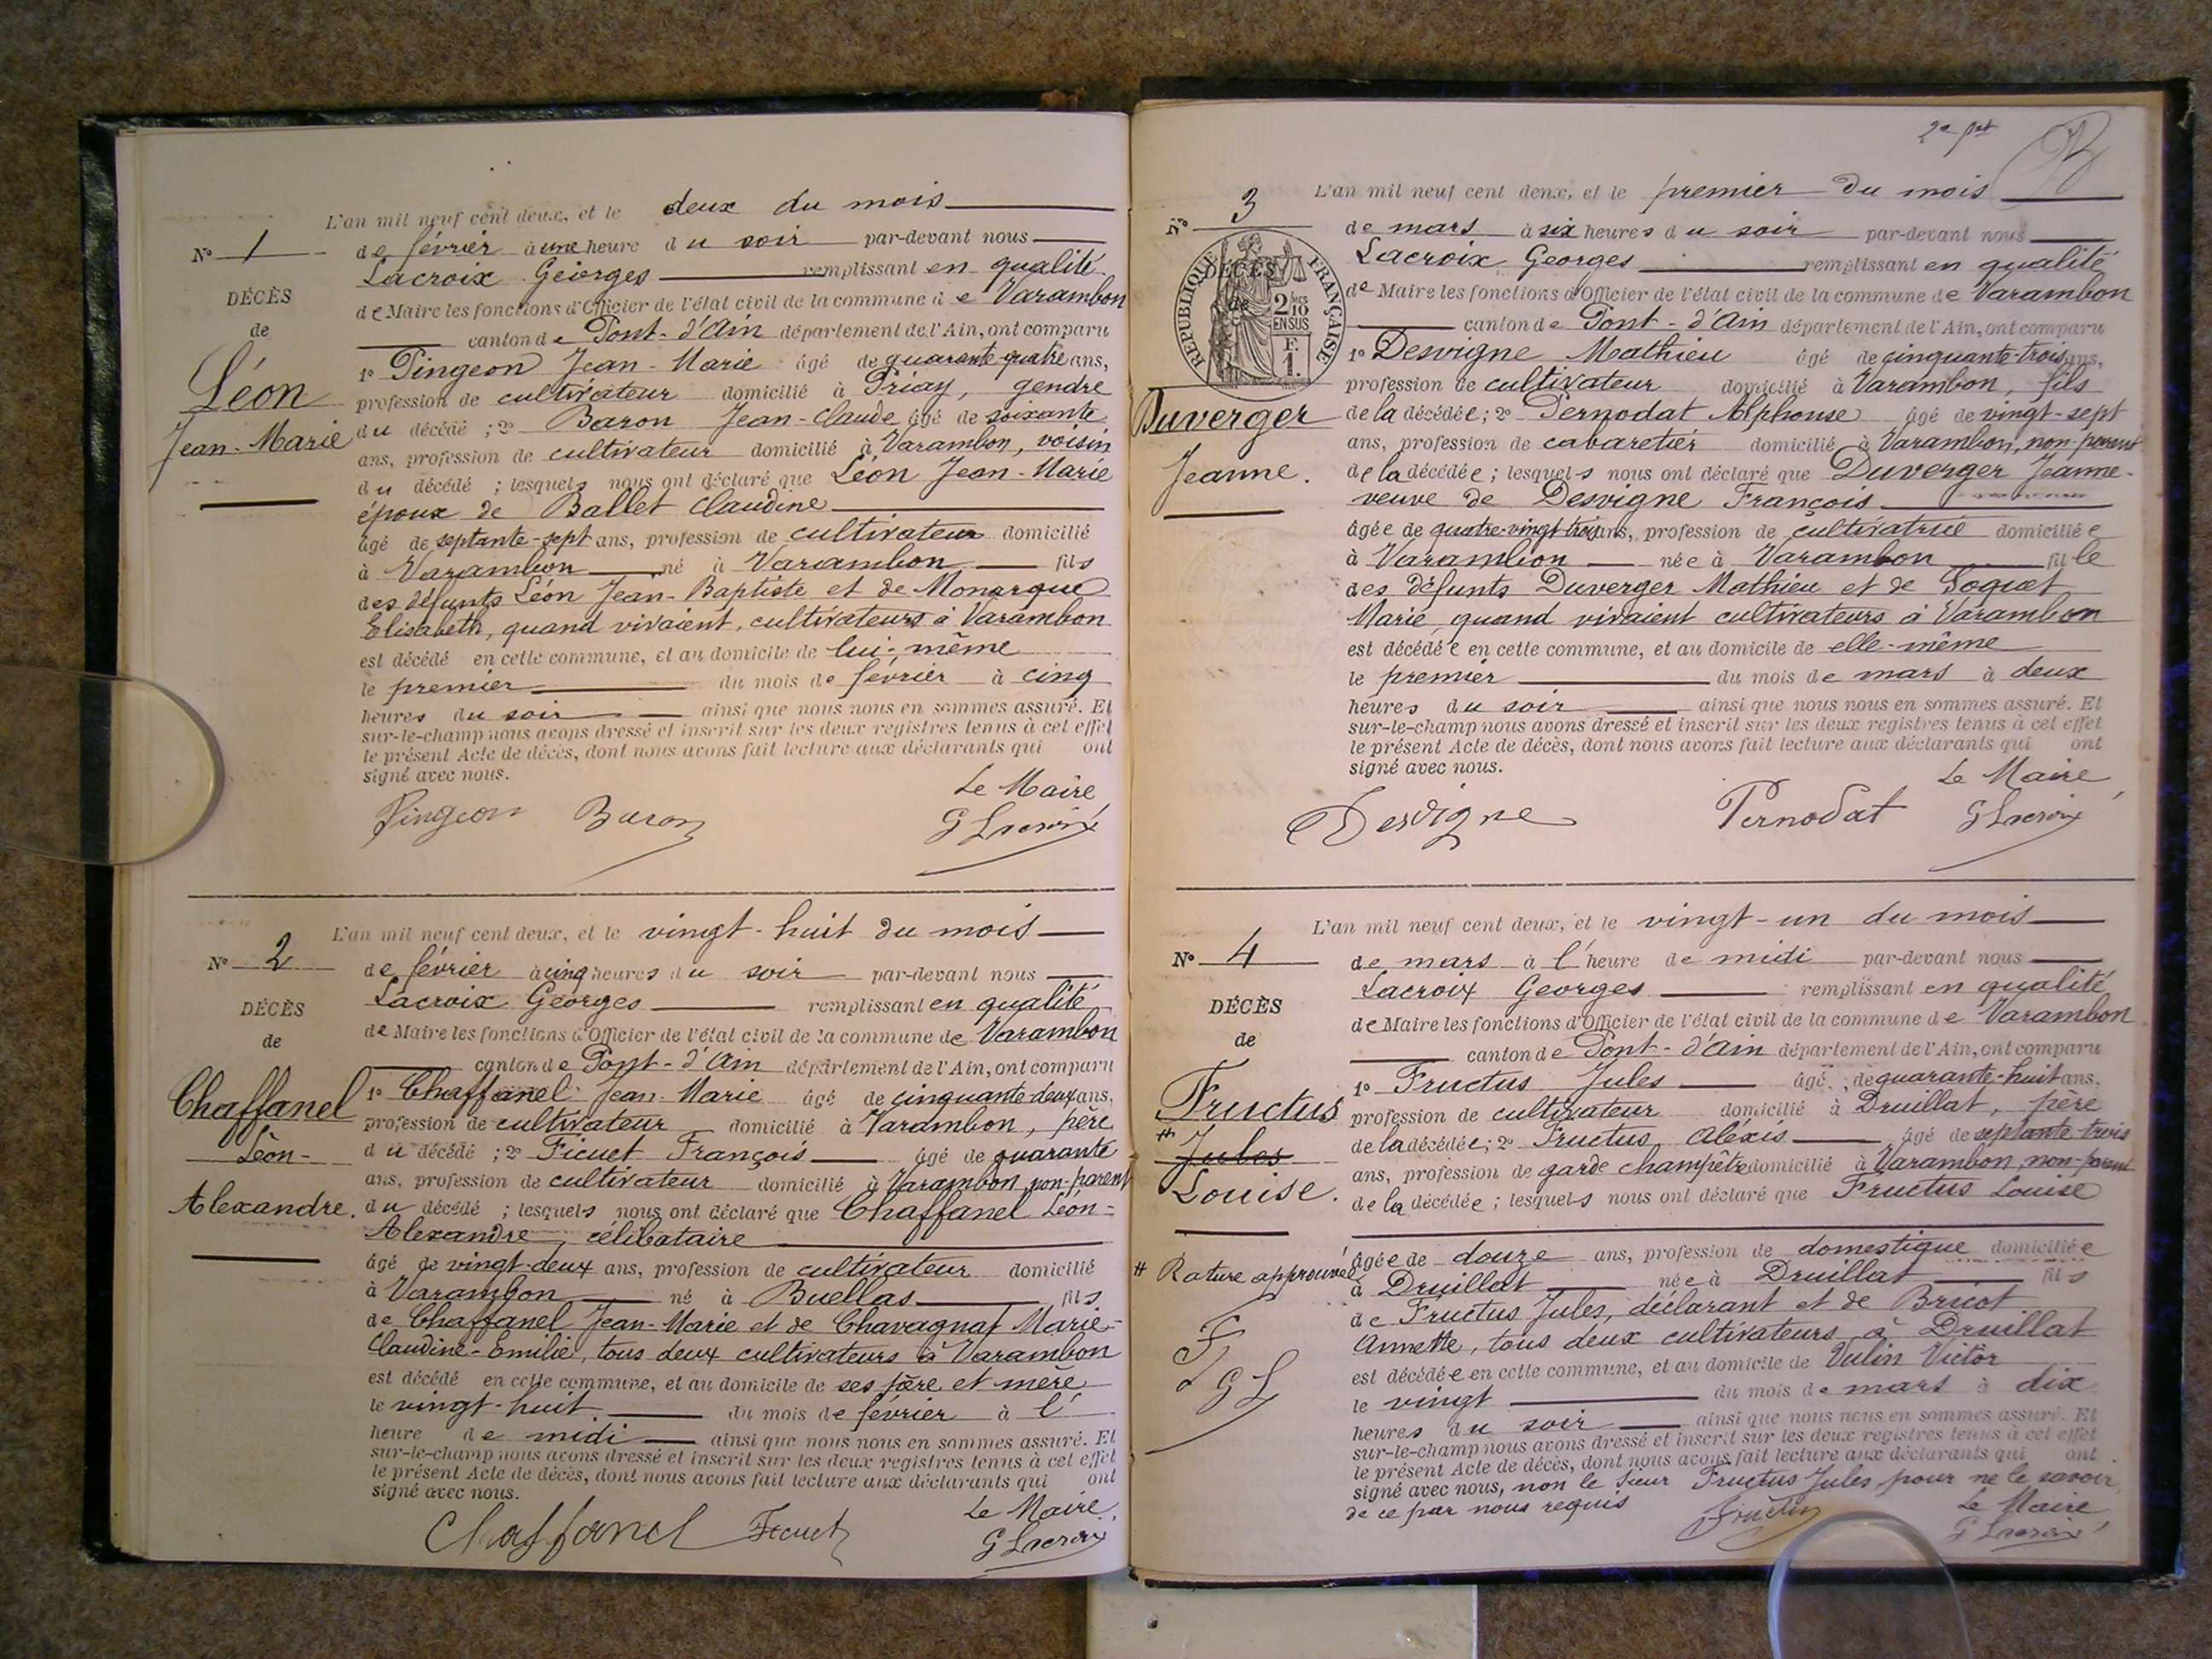 L'an mil neuf cent deux, et le deux du mois
N° 1
de février à une heure du soir par-devant nous
Lacroix Georges remplissant en qualité
DÉCÈS
de Maire les fonctions d'Officier de l'état civil de la commune de Varambon
de
canton de Pont-d'Ain département de l'Ain, ont comparu
1° Pingeon Jean-Marie âgé de quarante-quatre ans,
Léon
profession de cultivateur domicilié à Priay, gendre
du décédé ; 2° Baron Jean-Claude âgé de soixante
Jean-Marie
ans, profession de cultivateur domicilié à Varambon, voisin
du décédé ; lesquels nous ont déclaré que Léon Jean-Marie
époux de Ballet Claudine
âgé de septante-sept ans, profession de cultivateur domicilié
à Varambon né à Varambon fils
des défunts Léon Jean-Baptiste et de Monarque
Elisabeth, quand vivaient, cultivateurs à Varambon
est décédé en cette commune, et au domicile de lui-même
le premier du mois de février à cinq
heures du soir ainsi que nous nous en sommes assuré. Et
sur-le-champ nous avons dressé et inscrit sur les deux registres tenus à cet effet
le présent Acte de décès, dont nous avons fait lecture aux déclarants qui ont
signé avec nous.
Le Maire
Pingeon Baron G Lacroix
L'an mil neuf cent deux, et le vingt-huit du mois
N° 2
de février à cinq heures du soir par-devant nous
Lacroix Georges remplissant en qualité
DÉCÈS
de Maire les fonctions d'Officier de l'état civil de la commune de Varambon
de
canton de Pont-d'Ain département de l'Ain, ont comparu
Chaffanel
1° Chaffanel Jean-Marie âgé de cinquante-deux ans,
profession de cultivateur domicilié à Varambon, père
Léon-
du décédé ; 2° Ficuet François âgé de quarante
ans, profession de cultivateur domicilié à Varambon non-parent
Alexandre.
du décédé ; lesquels nous ont déclaré que Chaffanel Léon-
Alexandre, célibataire
âgé de vingt-deux ans, profession de cultivateur domicilié
à Varambon né à Buellas fils
de Chaffanel Jean-Marie et de Chavagnat Marie-
Claudine-Emilie, tous deux cultivateurs à Varambon
est décédé en cette commune, et au domicile de ses père et mère
le vingt-huit du mois de février à l'
heure de midi ainsi que nous nous en sommes assuré. Et
sur-le-champ nous avons dressé et inscrit sur les deux registres tenus à cet effet
le présent Acte de décès, dont nous avons fait lecture aux déclarants qui ont
signé avec nous.
Le Maire,
Chaffanel Ficuet G Lacroix
L'an mil neuf cent deux, et le premier du mois
N° 3
de mars à six heures du soir par-devant nous
Lacroix Georges remplissant en qualité
RÉPUBLIQUE FRANÇAISE
DÉCÈS
de
2/10 EN SUS
F. 1.
de Maire les fonctions d'Officier de l'état civil de la commune de Varambon
canton de Pont-d'Ain département de l'Ain, ont comparu
1° Desvigne Mathieu âgé de cinquante-trois ans,
profession de cultivateur domicilié à Varambon, fils
Duverger
de la décédée ; 2° Pernodat Alphonse âgé de vingt-sept
ans, profession de cabaretier domicilié à Varambon, non-parent
Jeanne.
de la décédée ; lesquels nous ont déclaré que Duverger Jeanne-
veuve de Desvigne François
âgée de quatre-vingt-trois ans, profession de cultivatrice domiciliée
à Varambon née à Varambon fille
des défunts Duverger Mathieu et de Goquet
Marie, quand vivaient cultivateurs à Varambon
est décédée en cette commune, et au domicile de elle-même
le premier du mois de mars à deux
heures du soir ainsi que nous nous en sommes assuré. Et
sur-le-champ nous avons dressé et inscrit sur les deux registres tenus à cet effet
le présent Acte de décès, dont nous avons fait lecture aux déclarants qui ont
signé avec nous.
Le Maire,
Desvigne Pernodat G Lacroix
L'an mil neuf cent deux, et le vingt-un du mois
N° 4
de mars à l'heure de midi par-devant nous
Lacroix Georges remplissant en qualité
DÉCÈS
de Maire les fonctions d'Officier de l'état civil de la commune de Varambon
de
canton de Pont-d'Ain département de l'Ain, ont comparu
1° Fructus Jules âgé de quarante-huit ans.
Fructus
profession de cultivateur domicilié à Druillat, père
# Jules
de la décédée ; 2° Fructus Aléxis âgé de septante-trois
ans, profession de garde champêtre domicilié à Varambon, non-parent
Louise.
de la décédée ; lesquels nous ont déclaré que Fructus Louise
âgée de douze ans, profession de domestique domiciliée
# Rature approuvée
à Druillat née à Druillat fils
de Fructus Jules, déclarant et de Bricot
Annette, tous deux cultivateurs à Druillat
F
est décédée en cette commune, et au domicile de Vulin Victor
G L
le vingt du mois de mars à dix
heures du soir ainsi que nous nous en sommes assuré. Et
sur-le-champ nous avons dressé et inscrit sur les deux registres tenus à cet effet
le présent Acte de décès, dont nous avons fait lecture aux déclarants qui ont
signé avec nous, non le sieur Fructus Jules, pour ne le savoir,
de ce par nous requis
Le Maire,
Fructus G Lacroix